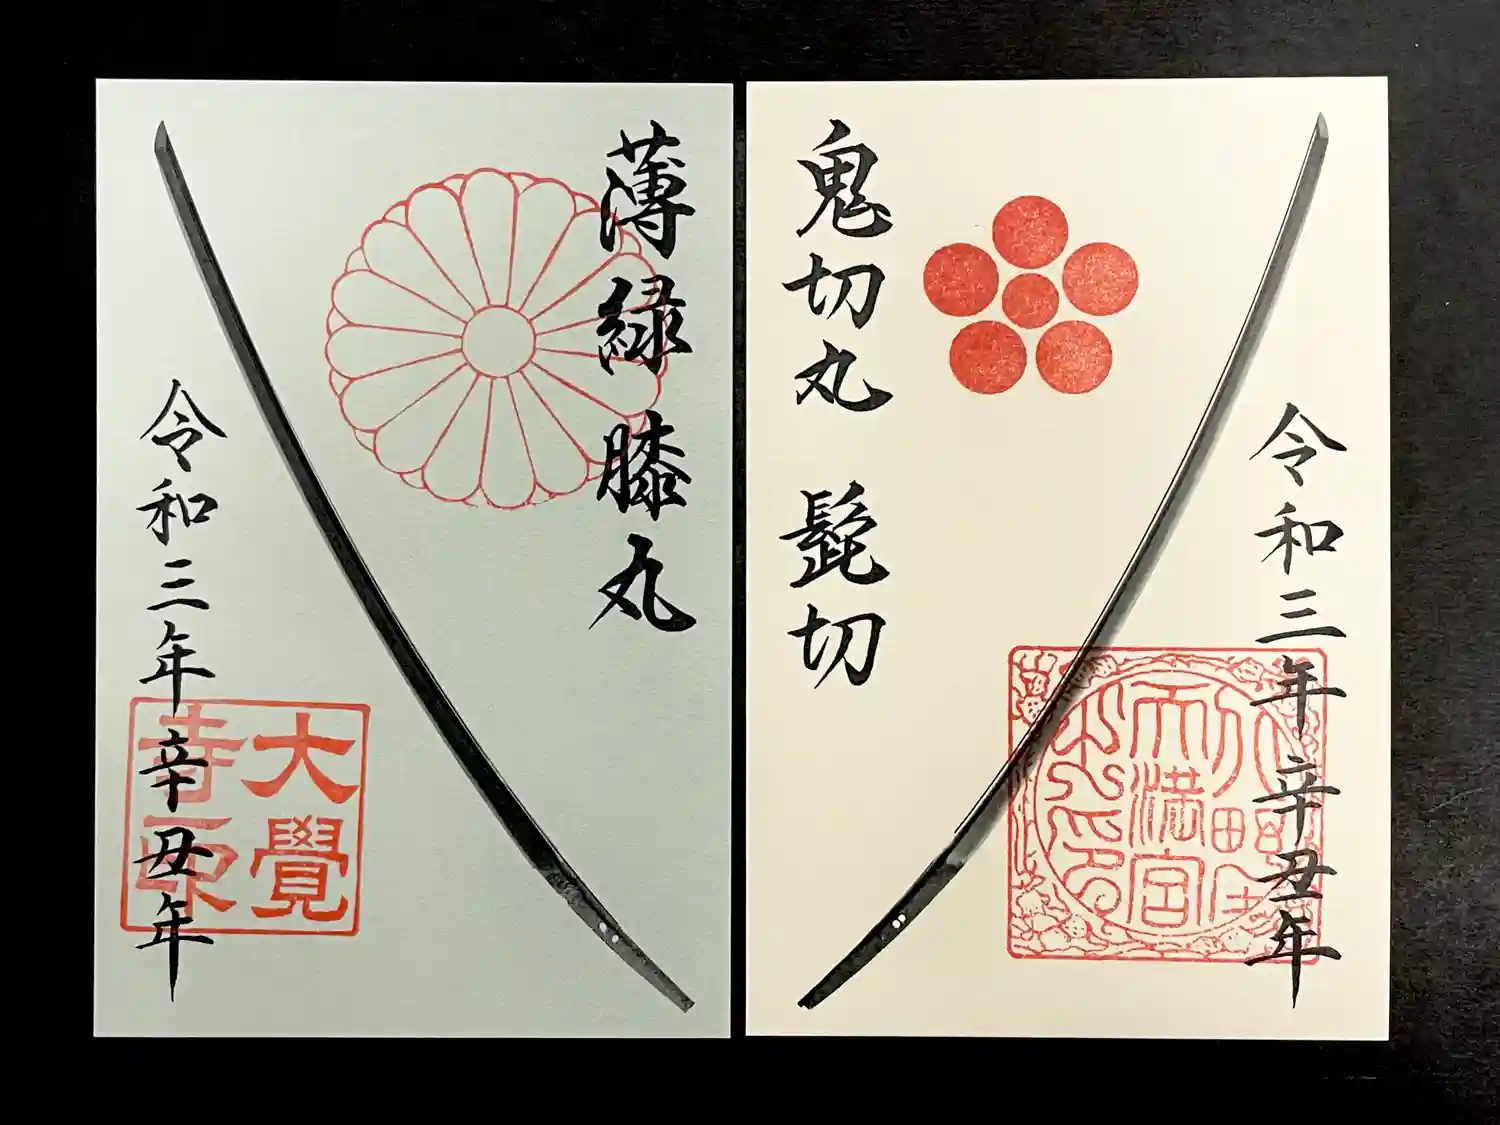 薄緑 膝丸
令和三年辛丑年
大覺
寺印
鬼切丸 髭切
令和三年辛丑年
天満宮